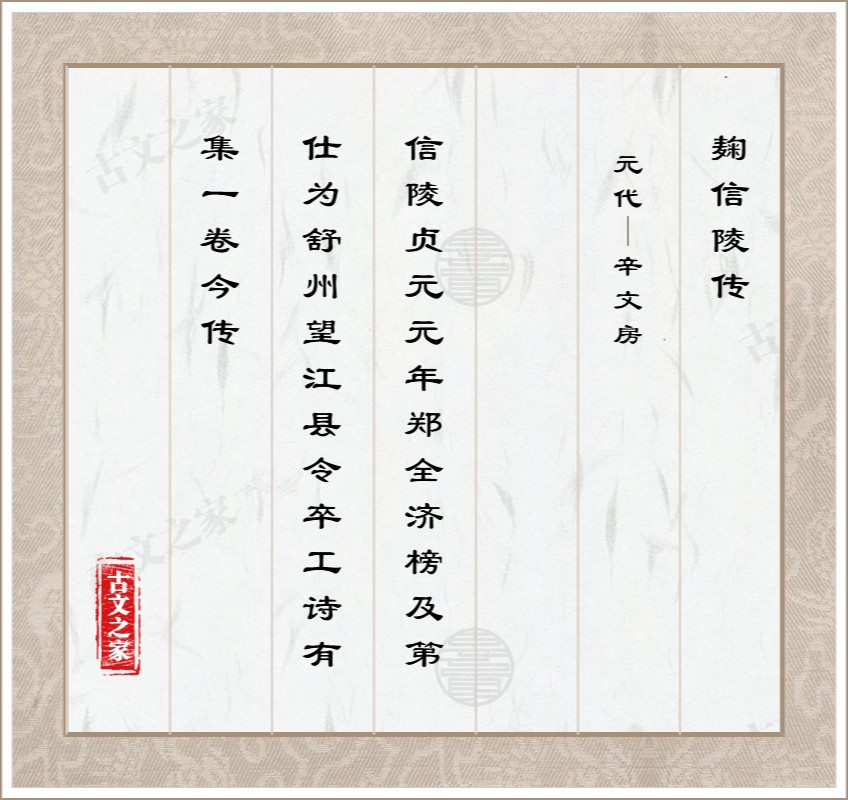 麹信陵传
元代—辛文房
信陵贞元元年郑全济榜及第
仕为舒州望江县令卒工诗有
集一卷今传
古文之家
古文之家
古文之家